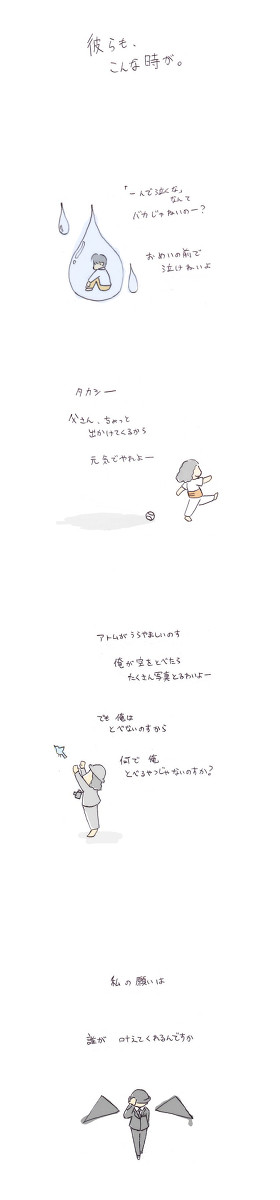 彼らも、
こんな時が。
「一人で泣くな」
なんて
バカじゃねいのー?
おめいの前で
泣けねいよ
タカシー
父さん、ちょっと
出かけてくるから
元気でやれよー
アトムがうらやましいのす
俺が空をとべたら
たくさん写真とるわいよー
でも 俺は
とべないのすから
何で 俺
とべるやつじゃないのすか?
私の願いは
誰が 叶えてくれるんですか